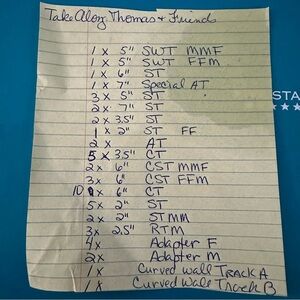 Take Along Thomas + Friends
1 x 5" SWT MMF
1 x 5" SWT FFM
1 x 6" ST
1 x 7" Special AT
3 x 5" ST
2 x 7" ST
2 x 3.5" ST
1 x 2" ST FF
2 x AT
5 x 3.5" CT
2 x 6" CST MMF
3 x 6" CST FFM
10 x 6" CT
5 x 2" ST
2 x 2" ST MM
3 x 2.5" RTM
4 x Adapter F
2 x Adapter M
1 x Curved Wall Track A
1 x Curved Wall Track B
STA